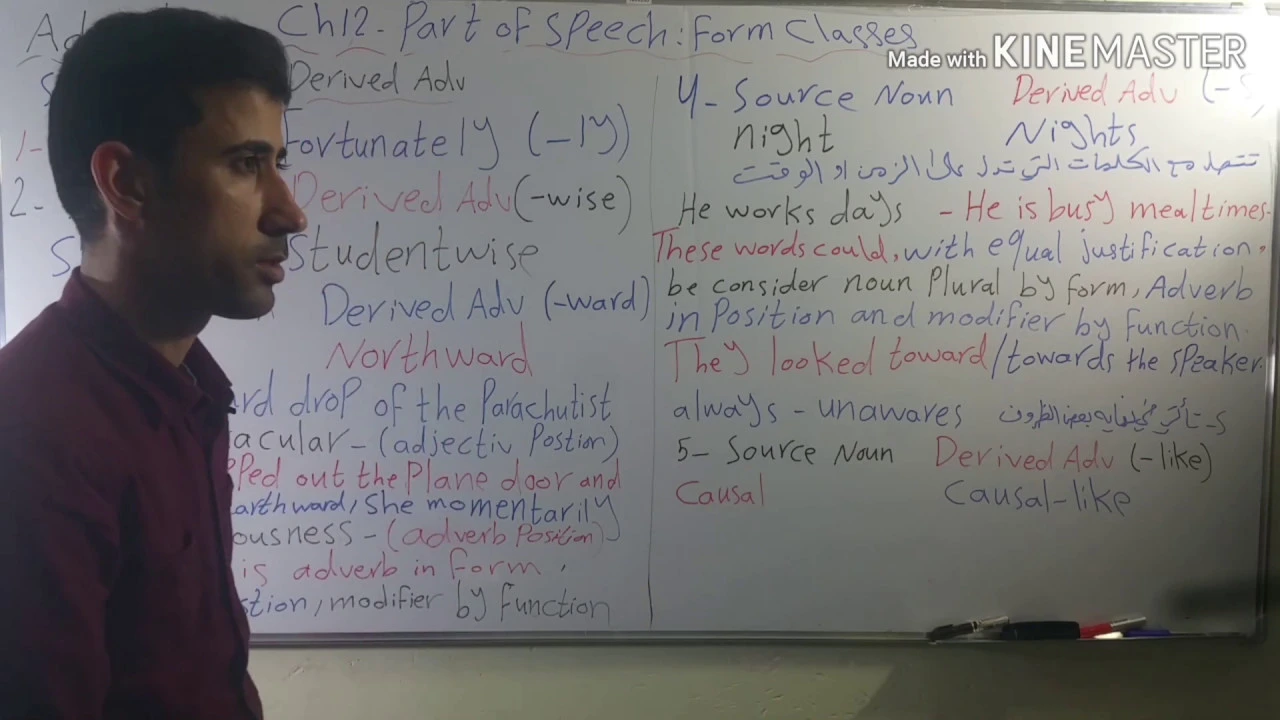 Ad
Ch12. Part of Speech: Form Classes
Made with KINEMASTER
S
Derived Adv
1-
Fortunately (-ly)
2-
Derived Adv (-wise)
S
Studentwise
Derived Adv (-ward)
Northward
rd drop of the Parachutist
acular - (adjectiv Postion)
PPed out the Plane door and
arthward, She momentarily
ousness - (adverb Position)
is adverb in form.
stion, modifier by Function
4- Source Noun Derived Adv (-S)
night Nights
تتصل مع الكلمات التي تدل على الزمن او الوقت
He works days - He is busy mealtimes.
These words could, with equal justification,
be consider noun Plural by form, Adverb
in Position and modifier by Function.
They looked toward/towards the Speaker.
always - unawares
5- Source Noun Derived Adv (-like)
Causal Causal-like